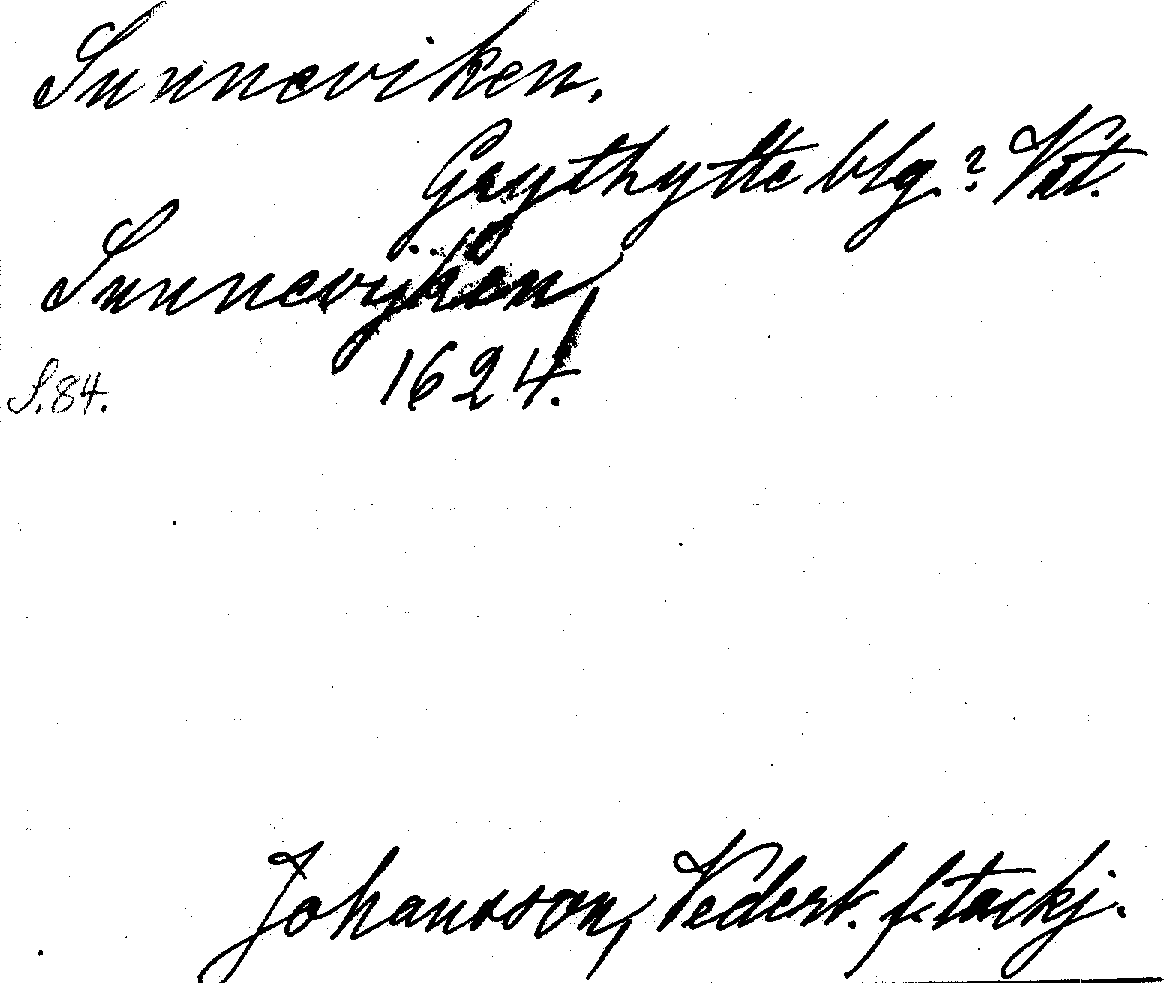 Sunneviken.
Grythytte blg.? Vst.
Sunnevijken
1624.
S. 84.
Johansson, Vederk. f. tackj.